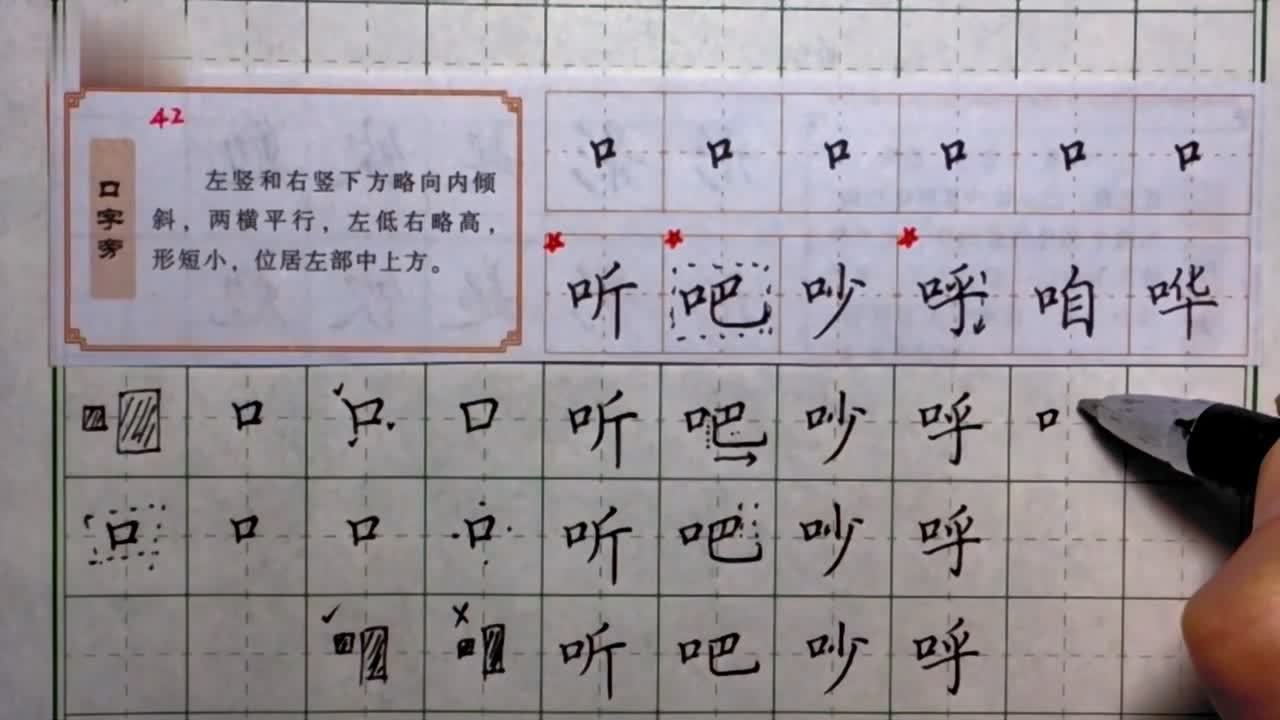 42
口字旁
左竖和右竖下方略向内倾
斜，两横平行，左低右略高，
形短小，位居左部中上方。
口 口 口 口 口 口
听 吧 吵 呼 咱 哗
口 口 口 听 吧 吵 呼 口
口 口 口 口 听 吧 吵 呼
听 吧 吵 呼